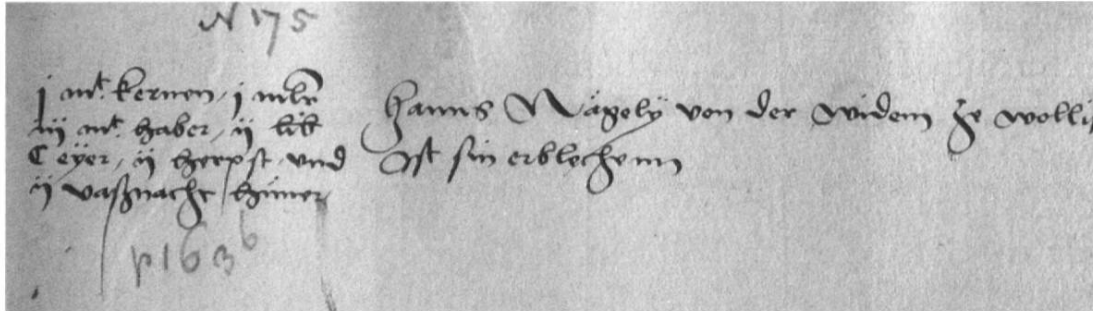 N 175
j mt. kernen, j mlr
iij mt. haber, ij lib
C eÿer, ij herpst und
ij vaßnacht hüner
Hanns Nägelÿ von der widem ze wollis
Ist sin erblechenn
p 1636